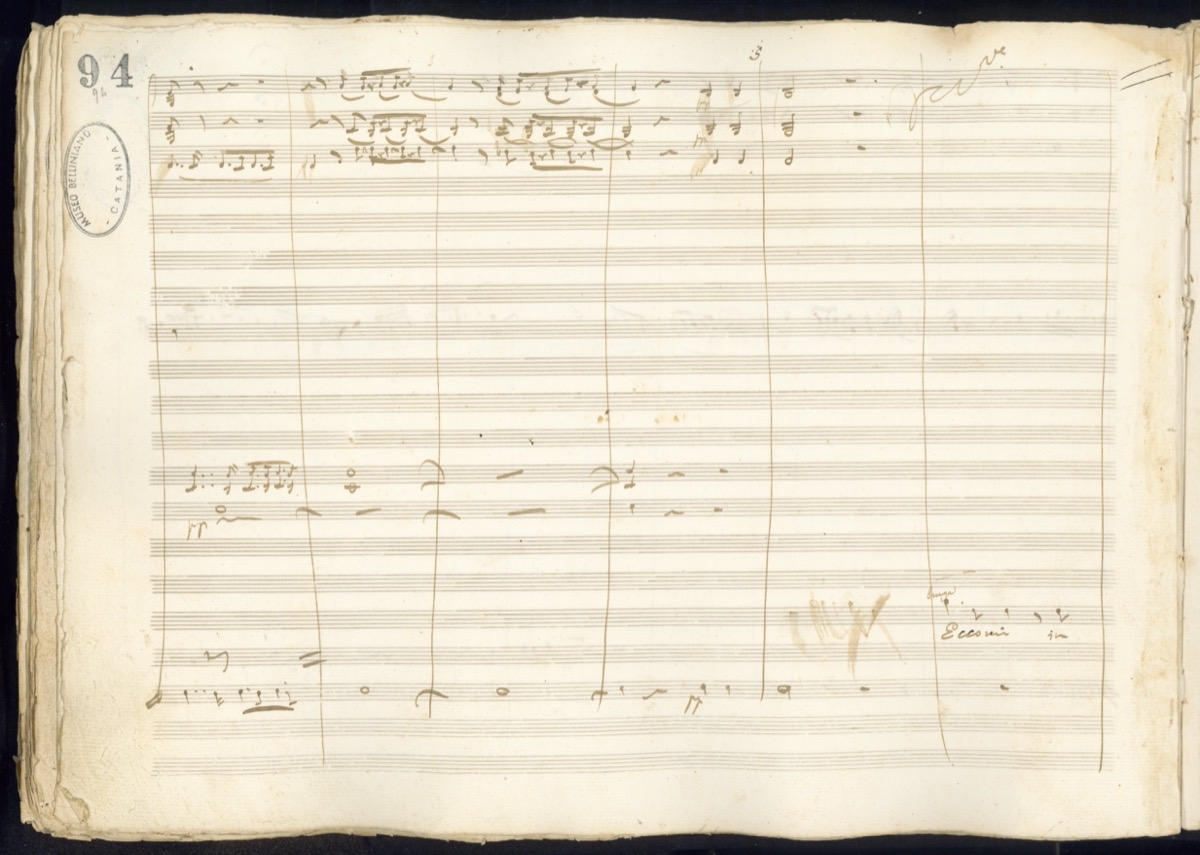 94
94
3
MUSEO BELLINIANO
- CATANIA -
pp
pp
Eccomi in